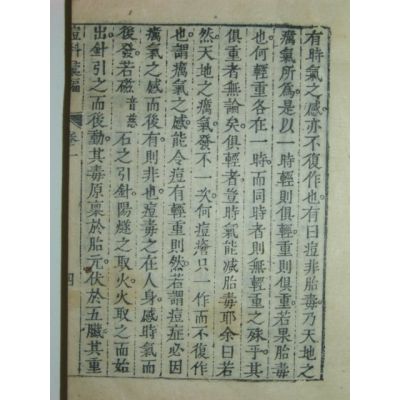 有時氣之感亦不復作也有曰痘非胎毒乃天地之
癘氣所爲是以一時輕則俱輕重則俱重若果胎毒
也何輕重各在一時而同時者則無輕重之殊乎其
俱重者無論矣俱輕者豈時氣能減胎毒耶余曰若
然天地之癘氣發不一次何痘瘡只一作而不復作
也謂癘氣之感能令痘有輕重則然若謂痘症必因
癘氣之感而後有則非也痘毒之在人身感時氣而
後發若磁音慈石之引針陽燧之取火火取之而始
出針引之而後動其毒原稟於胎元伏於五臟其重
痘科 卷一 四